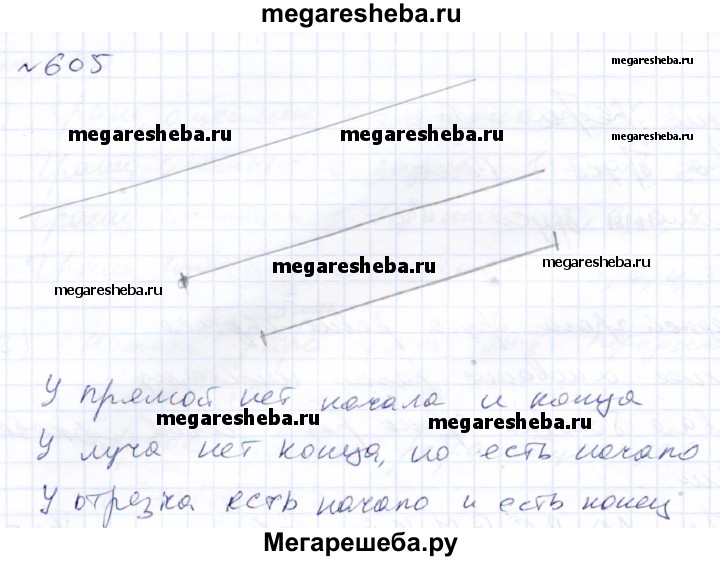 megaresheba.ru
№605
megaresheba.ru
megaresheba.ru
megaresheba.ru
megaresheba.ru
megaresheba.ru
megaresheba.ru
У прямой нет начала и конца
megaresheba.ru
megaresheba.ru
У луча нет конца, но есть начало
У отрезка есть начало и есть конец
Мегарешеба.ру